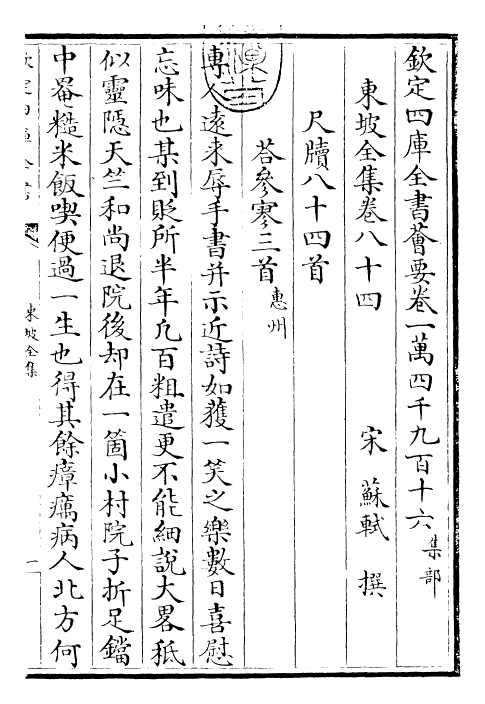 欽定四庫全書薈要卷一萬四千九百十六 集部
東坡全集卷八十四 宋 蘇軾 撰
尺牘八十四首
答參寥三首 惠州
專人遠來辱手書并示近詩如獲一笑之樂數日喜慰
忘味也某到貶所半年凡百粗遣更不能細說大畧秪
似靈隠天竺和尚退院後却在一箇小村院子折足鐺
中罨糙米飯喫便過一生也得其餘瘴癘病人北方何
東坡全集
一